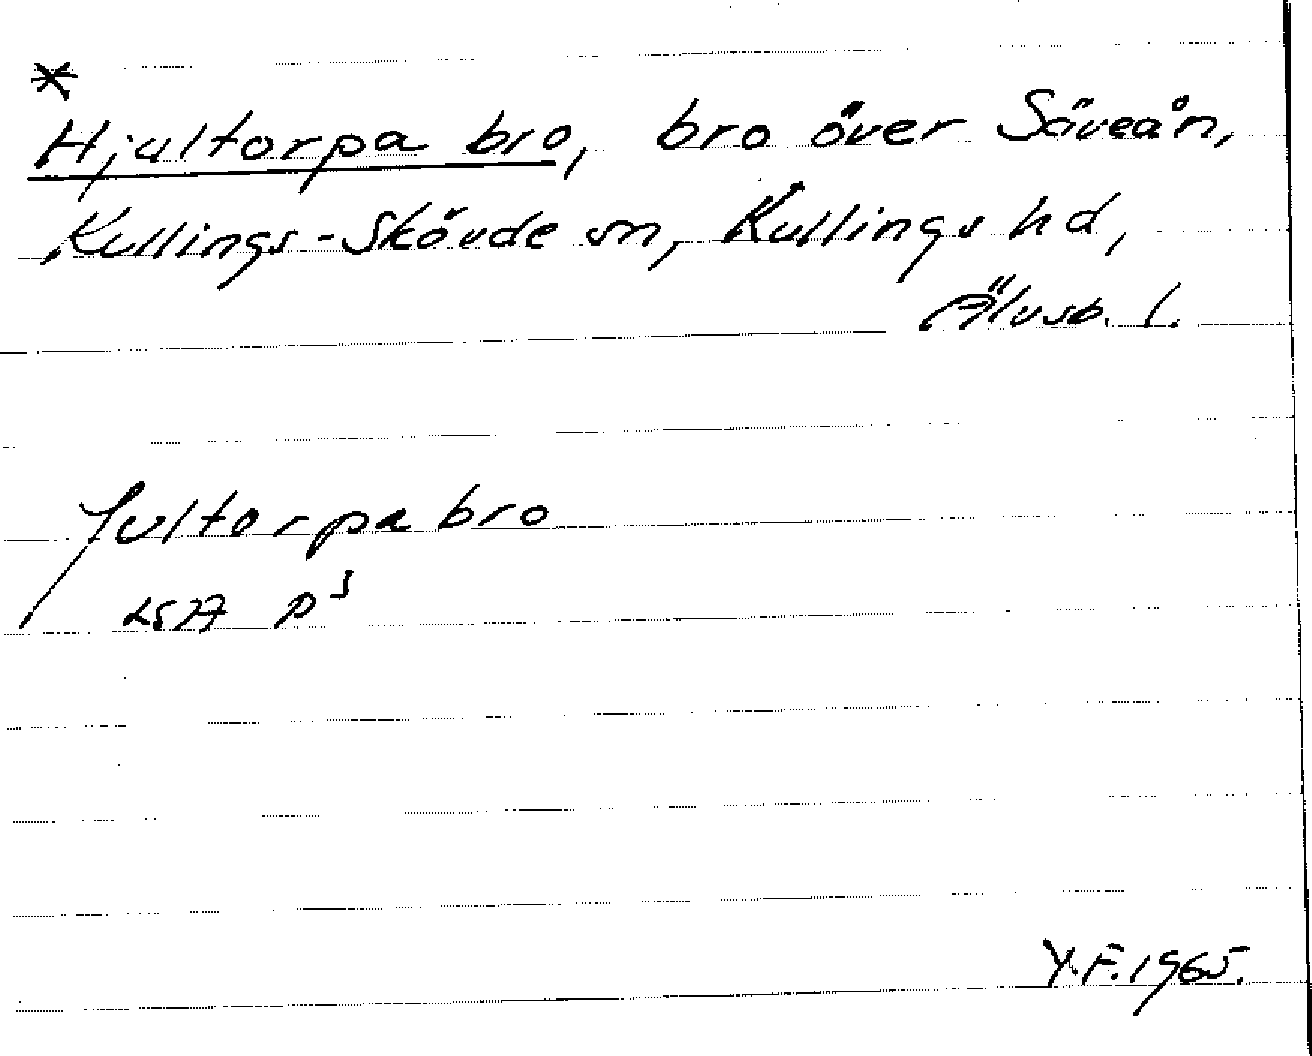 *
Hjultorpa bro, bro över Säveån,
Kullings-Skövde sn, Kullings hd,
Älvsb. l.
Jultorpa bro
LSA P⁵
Y.F. 1965.